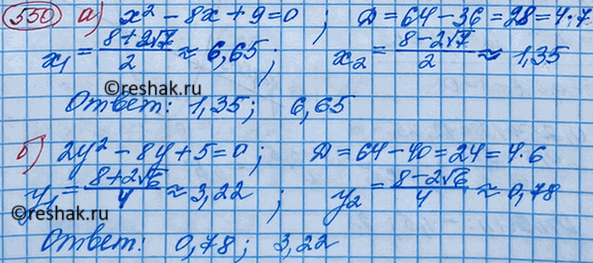 550 а) x² - 8x + 9 = 0 ; D = 64 - 36 = 28 = 4·7
x₁ = (8+2√7)/2 ≈ 6,65 ; x₂ = (8-2√7)/2 ≈ 1,35
©reshak.ru
Ответ: 1,35 ; 6,65
б) 2y² - 8y + 5 = 0 ; D = 64 - 40 = 24 = 4·6
y₁ = (8+2√6)/4 ≈ 3,22 ; y₂ = (8-2√6)/4 ≈ 0,78
©reshak.ru
Ответ: 0,78 ; 3,22